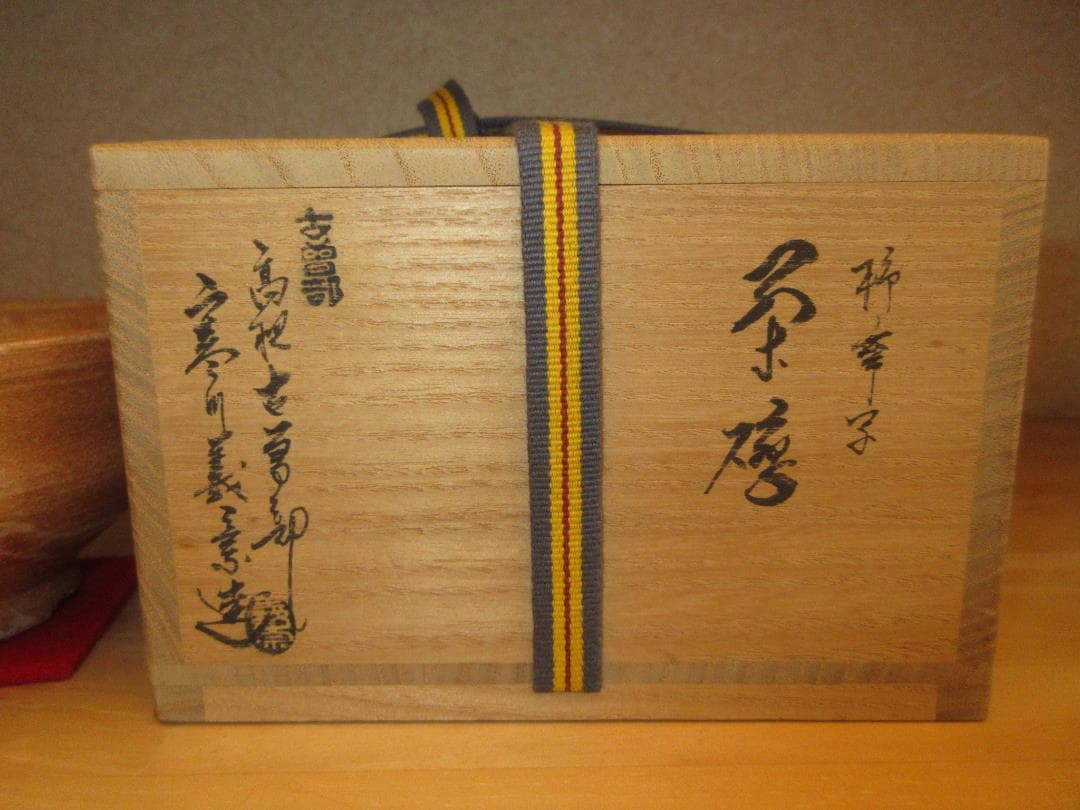 柿華平
茶碗
古曽部
高槻古曽部
寒川義崇造